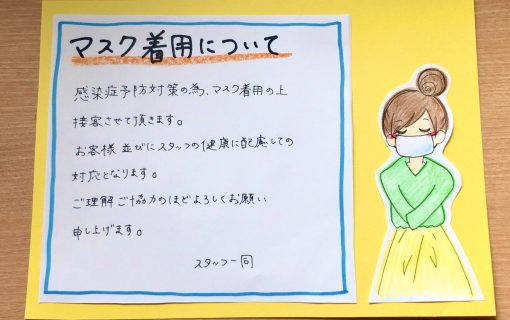 マスク着用について
感染症予防対策の為、マスク着用の上
接客させて頂きます。
お客様並びにスタッフの健康に配慮しての
対応となります。
ご理解ご協力のほどよろしくお願い
申し上げます。
スタッフ一同